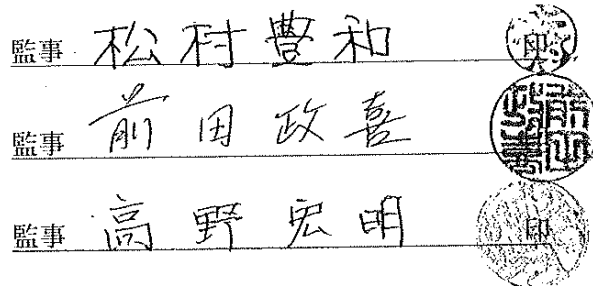 監事 松村豊和 印
監事 前田政喜
監事 高野宏明 印